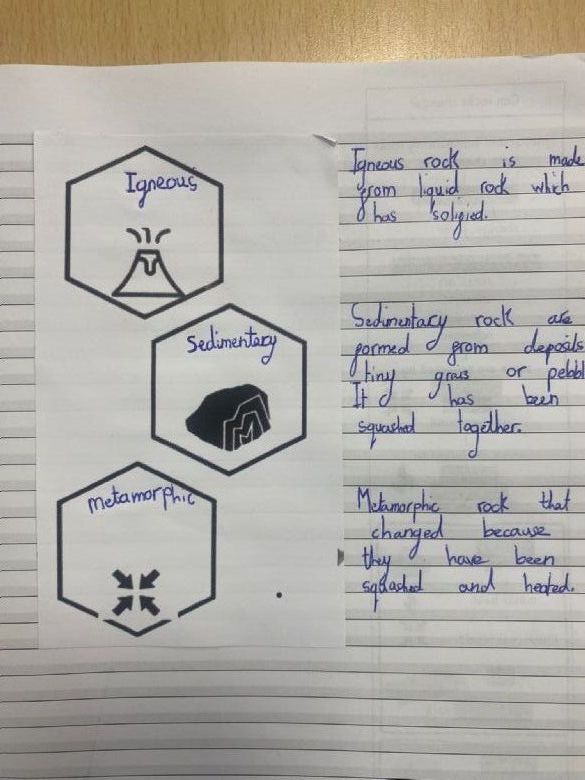 Igneous
Igneous rock is made
from liquid rock which
has solified.
Sedimentary
Sedimentary rock are
formed from deposits
tiny or pebbl
It has been
squashed together.
metamorphic
Metamorphic rock that
changed because
they have been
squashed and heated.